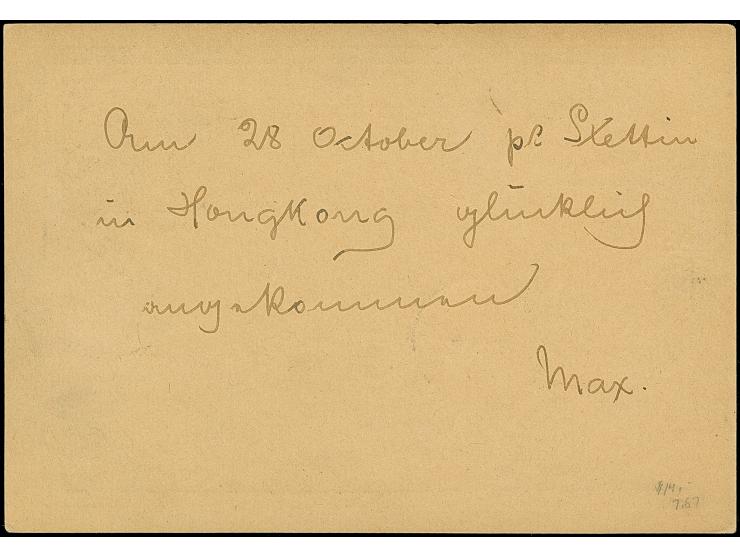 Am 28 October pr Stettin
in Hongkong glücklich
angekommen
Max.
7.87